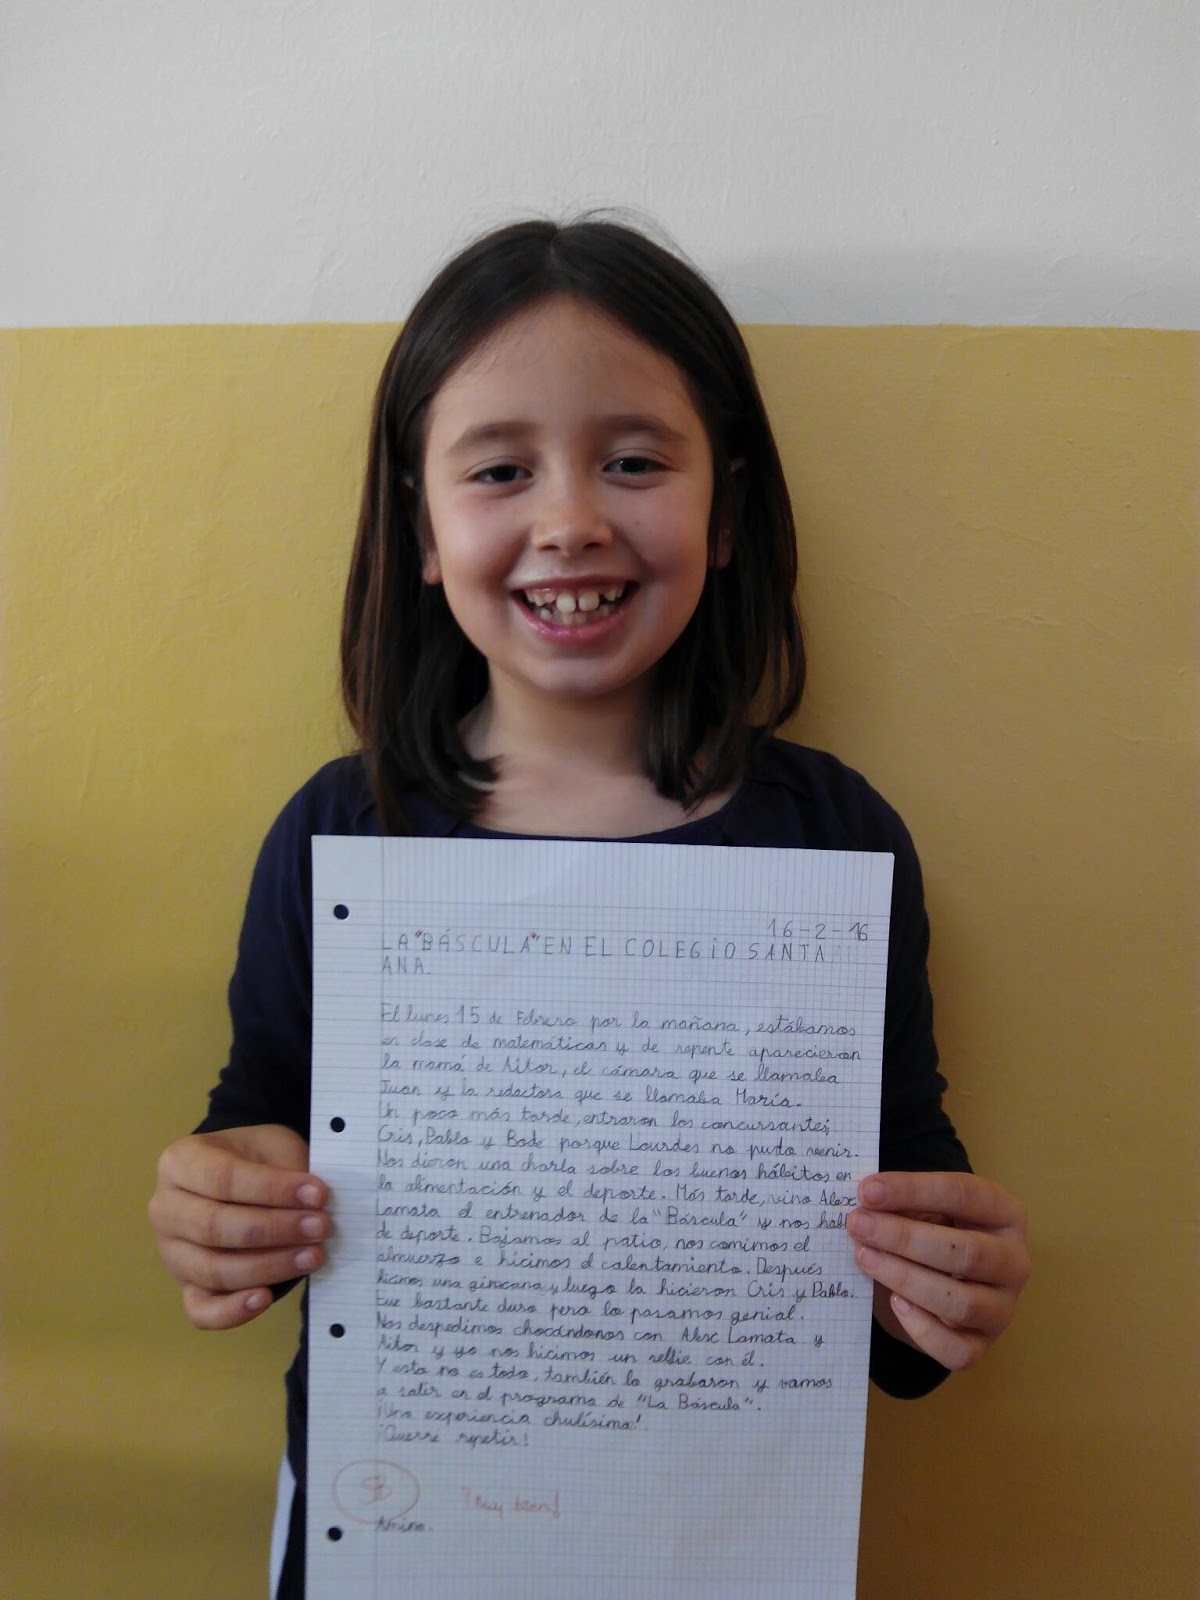 16-2-16
LA "BÁSCULA" EN EL COLEGIO SANTA
ANA.
El lunes 15 de Febrero por la mañana, estábamos
en clase de matemáticas y de repente aparecieron
la mamá de Aitor, el cámara que se llamaba
Juan y la redactora que se llamaba María.
Un poco más tarde, entraron los concursantes,
Cris, Pablo y Bode porque Lourdes no pudo venir.
Nos dieron una charla sobre los buenos hábitos en
la alimentación y el deporte. Más tarde, vino Alex
Lamata el entrenador de la "Báscula" y nos habl
de deporte. Bajamos al patio, nos comimos el
almuerzo e hicimos el calentamiento. Después
hicimos una gincana y luego la hicieron Cris y Pablo.
Fue bastante duro pero lo pasamos genial.
Nos despedimos chocándonos con Alex Lamata y
Aitor y yo nos hicimos un selfie con él.
Y esto no es todo, también lo grabaron y vamos
a salir en el programa de "La Báscula".
¡Una experiencia chulísima!
¡Querré repetir!
SB ¡Muy bien!